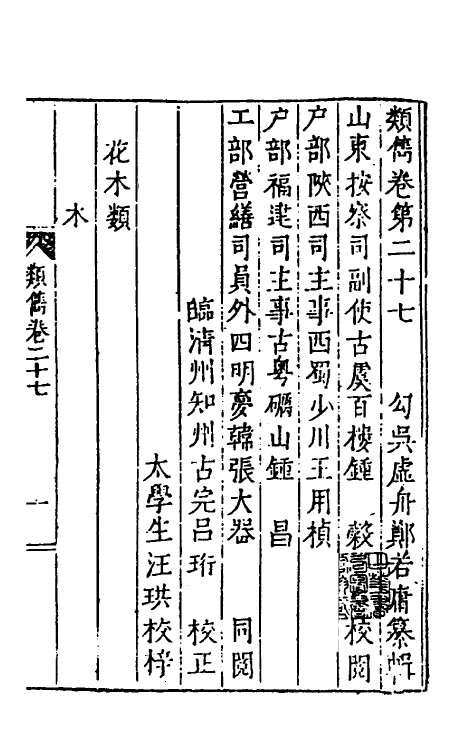 類雋卷第二十七 勾吳虛舟鄭若庸纂輯
山東按察司副使古虞百樓鍾 穀 校閱
户部陝西司主事西蜀少川王用楨
户部福建司主事古粤礪山鍾 昌
工部營繕司員外四明夢韓張大器 同閱
臨濟州知州古完呂珩 校正
太學生汪珙校梓
花木類
木
類雋卷二十七 一